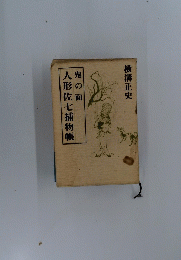 横溝正史
鬼の面
人形佐七捕物帳